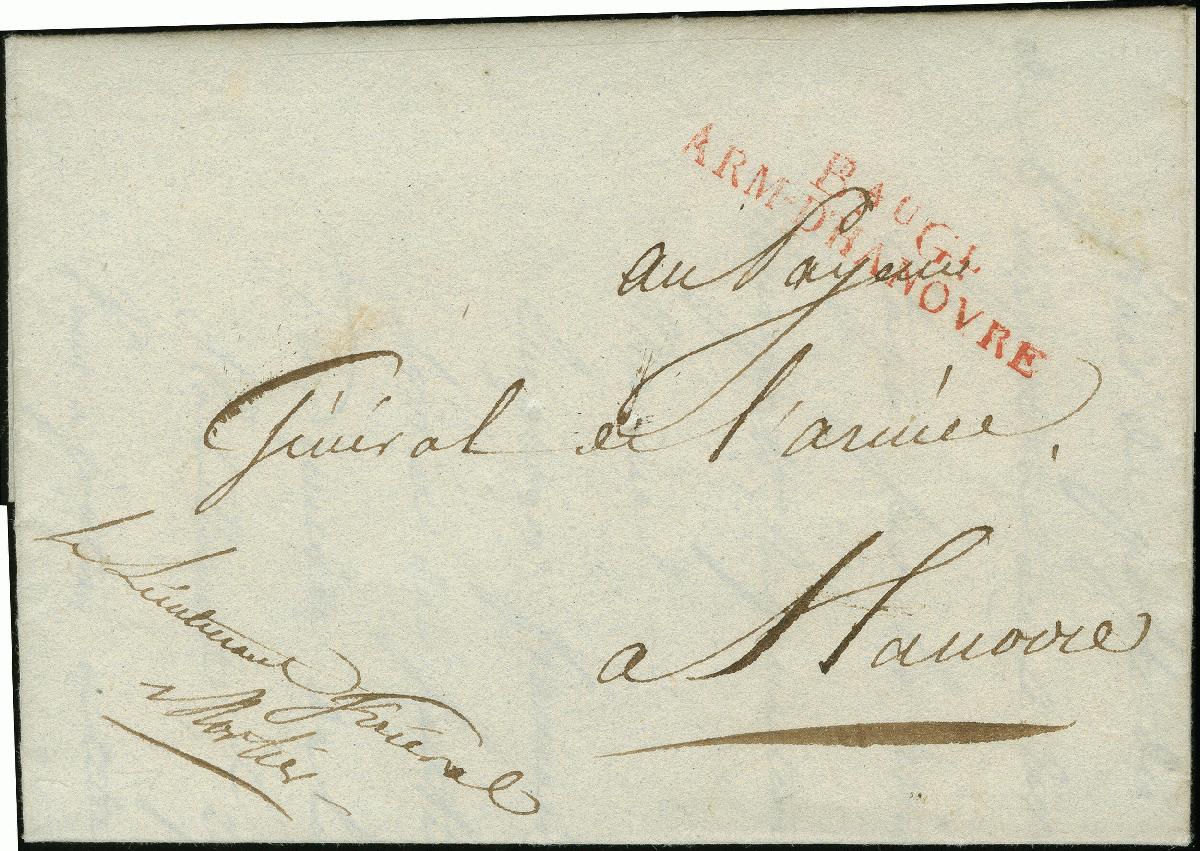 B AU GL
ARM-D'HANOVRE
au Payeur
Général de l'armée.
a Hanovre
le Lieutenant Général
Mortier